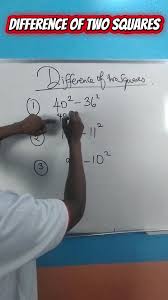 DIFFERENCE OF TWO SQUARES
Difference of two Squares
① 40² - 36²
② - 11²
③ - 10²